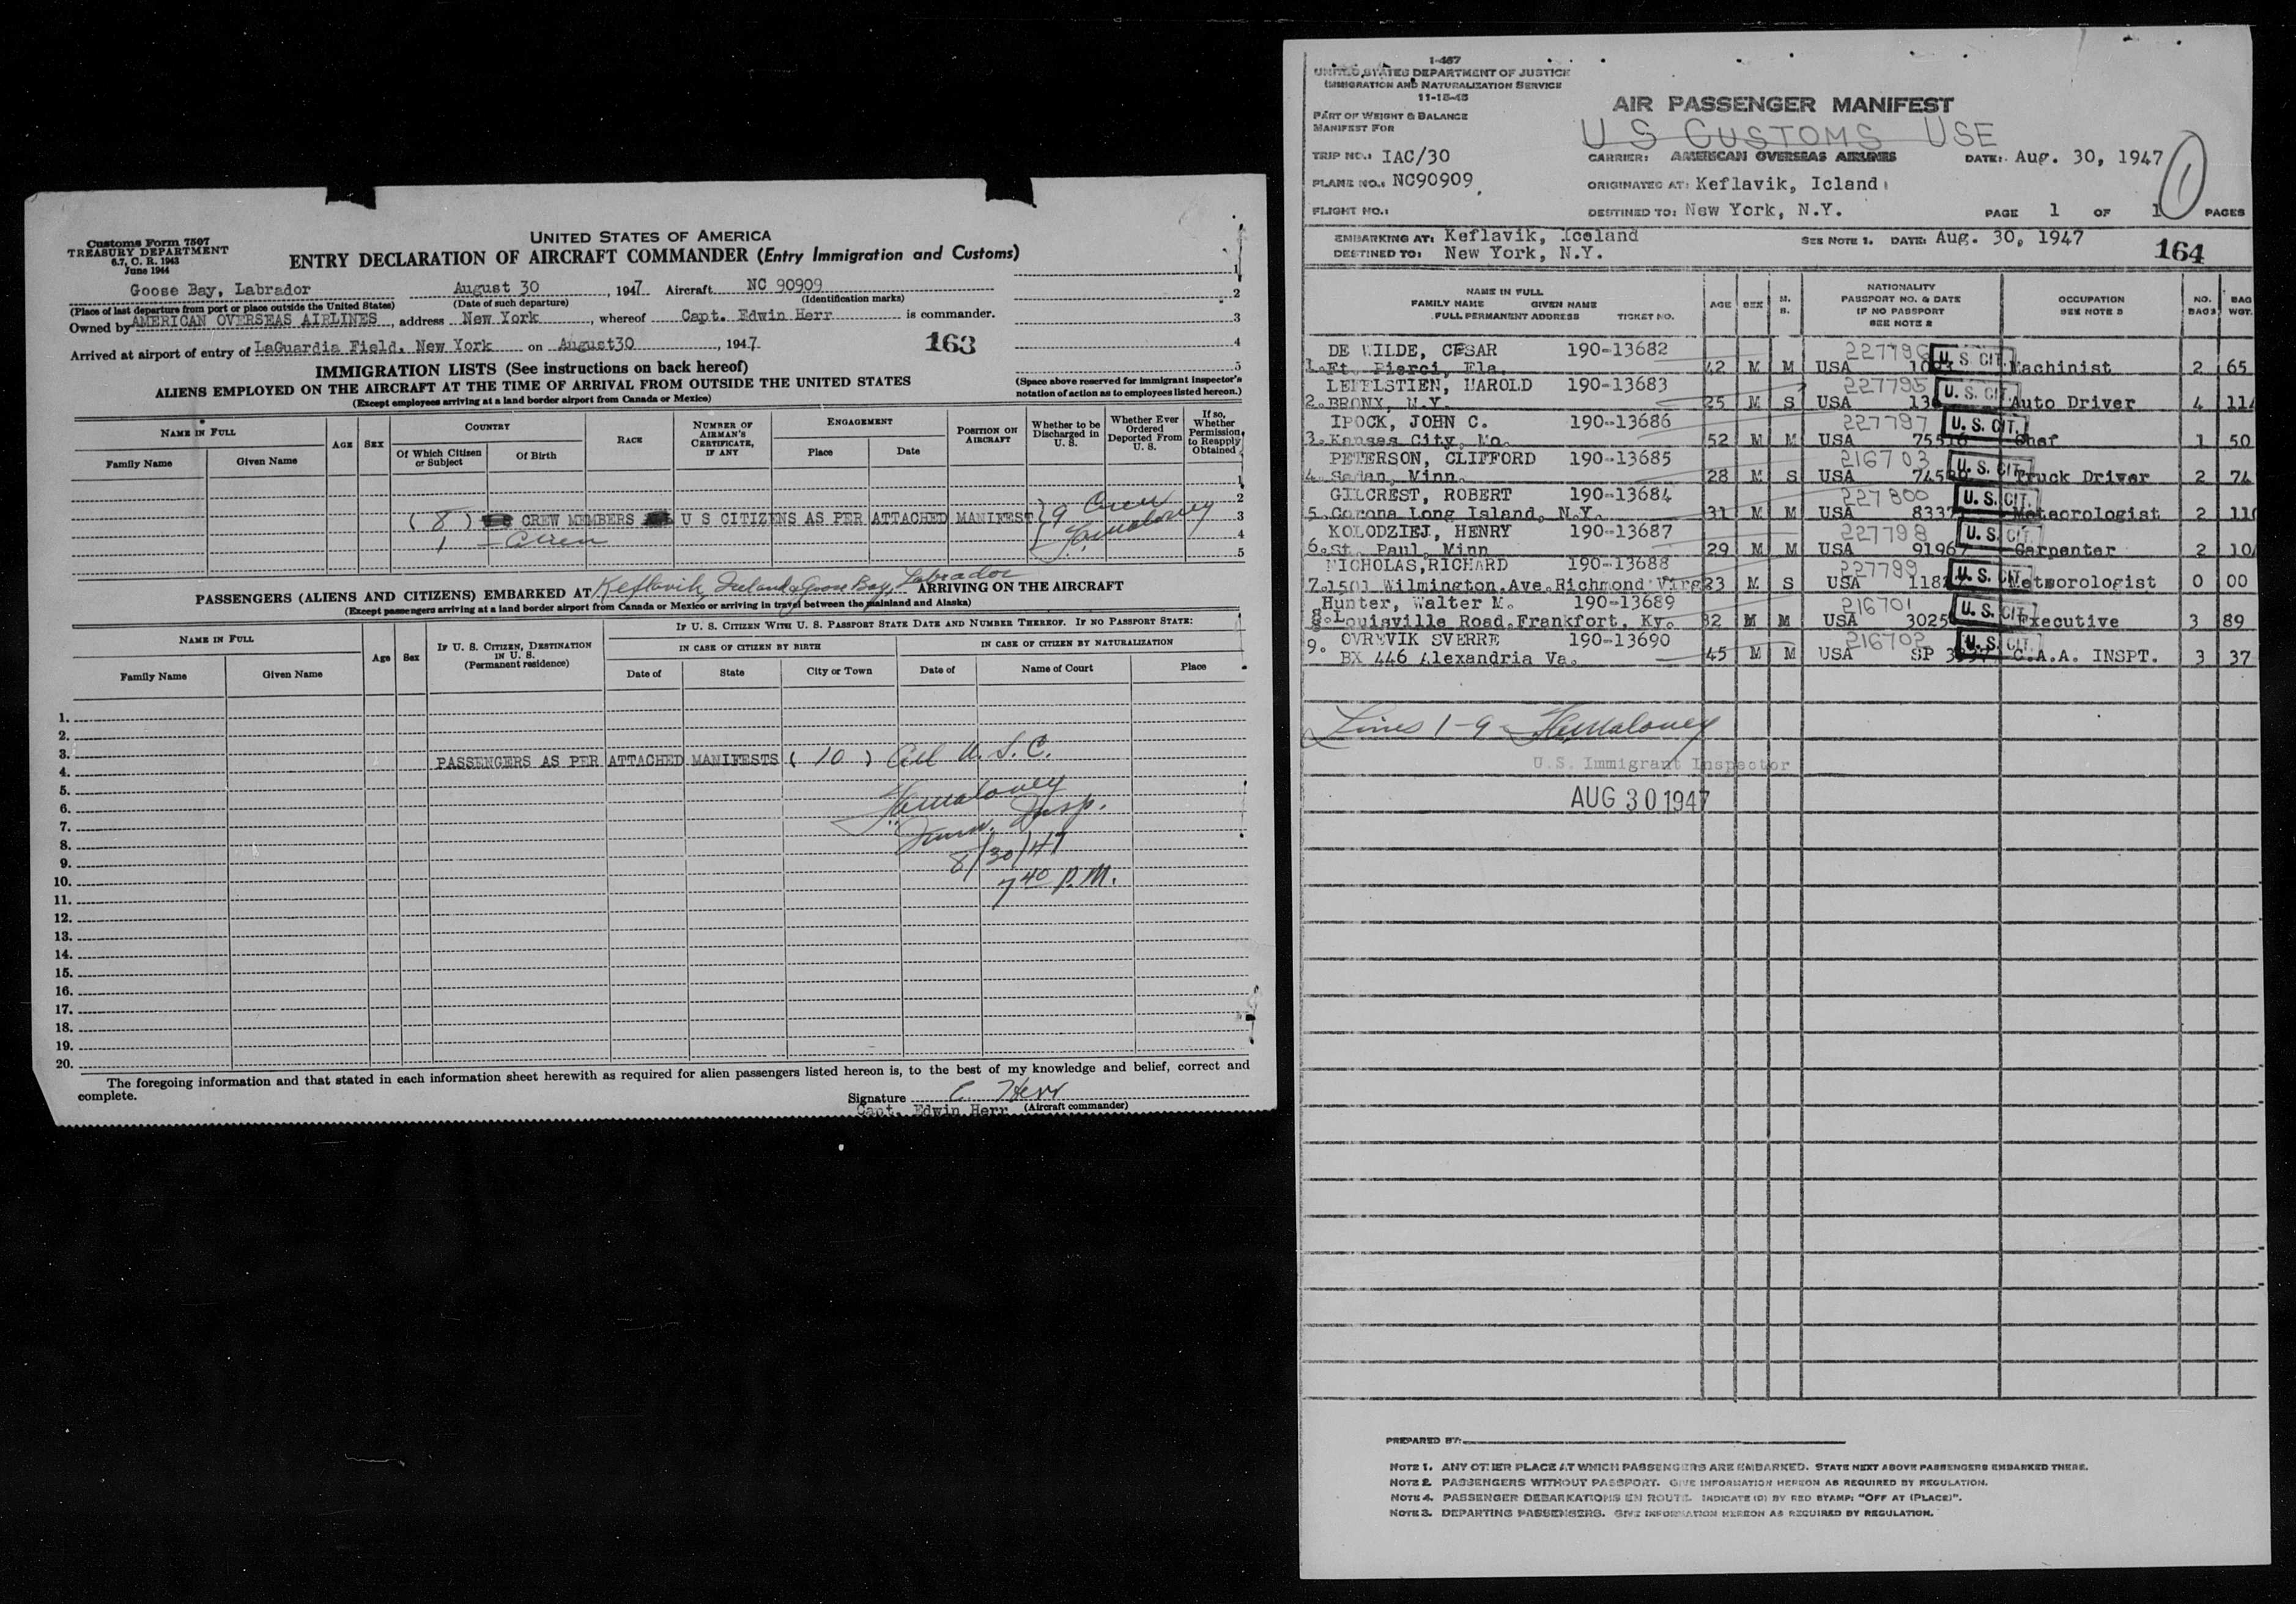 Customs Form 7507
TREASURY DEPARTMENT
6.7, C. R. 1943
June 1944
UNITED STATES OF AMERICA
ENTRY DECLARATION OF AIRCRAFT COMMANDER (Entry Immigration and Customs)
Goose Bay, Labrador August 30, 1947 Aircraft NC 90909
(Place of last departure from port or place outside the United States) (Date of such departure) (Identification marks)
Owned by AMERICAN OVERSEAS AIRLINES, address New York, whereof Capt. Edwin Herr is commander.
Arrived at airport of entry of LaGuardia Field, New York on August30, 1947 163
1
2
3
4
5
IMMIGRATION LISTS (See instructions on back hereof)
ALIENS EMPLOYED ON THE AIRCRAFT AT THE TIME OF ARRIVAL FROM OUTSIDE THE UNITED STATES
(Except employees arriving at a land border airport from Canada or Mexico)
(Space above reserved for immigrant inspector's
notation of action as to employees listed hereon.)
NAME IN FULL
Family Name Given Name
AGE SEX
COUNTRY
Of Which Citizen or Subject Of Birth
RACE
NUMBER OF AIRMAN'S CERTIFICATE, IF ANY
ENGAGEMENT
Place Date
POSITION ON AIRCRAFT
Whether to be Discharged in U. S.
Whether Ever Ordered Deported From U. S.
If so, Whether Permission to Reapply Obtained
1
2
3
4
5
( 8 ) CREW MEMBERS U S CITIZENS AS PER ATTACHED MANIFEST } 9 Crew
1 - Alien
F. Maloney
PASSENGERS (ALIENS AND CITIZENS) EMBARKED AT Keflavik, Iceland & Goose Bay, Labrador ARRIVING ON THE AIRCRAFT
(Except passengers arriving at a land border airport from Canada or Mexico or arriving in travel between the mainland and Alaska)
NAME IN FULL
Family Name Given Name
Age Sex
IF U. S. CITIZEN, DESTINATION IN U. S.
(Permanent residence)
IF U. S. CITIZEN WITH U. S. PASSPORT STATE DATE AND NUMBER THEREOF. IF NO PASSPORT STATE:
IN CASE OF CITIZEN BY BIRTH IN CASE OF CITIZEN BY NATURALIZATION
Date of State City or Town Date of Name of Court Place
1.
2.
3.
4. PASSENGERS AS PER ATTACHED MANIFESTS ( 10 ) All U.S.C.
5.
6.
7.
8.
9.
10.
11.
12.
13.
14.
15.
16.
17.
18.
19.
20.
Maloney
Imm. Insp.
8/30/47
7 40 P.M.
The foregoing information and that stated in each information sheet herewith as required for alien passengers listed hereon is, to the best of my knowledge and belief, correct and
complete.
Signature E. Herr
Capt. Edwin Herr (Aircraft commander)
I-467
UNITED STATES DEPARTMENT OF JUSTICE
IMMIGRATION AND NATURALIZATION SERVICE
11-15-45
PART OF WEIGHT & BALANCE
MANIFEST FOR
AIR PASSENGER MANIFEST
U S CUSTOMS USE
TRIP NO.: IAC/30 CARRIER: AMERICAN OVERSEAS AIRLINES DATE: Aug. 30, 1947
1
PLANE NO.: NC90909 ORIGINATED AT: Keflavik, Icland
FLIGHT NO.: DESTINED TO: New York, N.Y. PAGE 1 OF 1 PAGES
EMBARKING AT: Keflavik, Iceland SEE NOTE 1. DATE: Aug. 30, 1947
DESTINED TO: New York, N.Y. 164
NAME IN FULL
FAMILY NAME GIVEN NAME
FULL PERMANENT ADDRESS TICKET NO.
AGE SEX M. S.
NATIONALITY
PASSPORT NO. & DATE
IF NO PASSPORT
SEE NOTE 2
OCCUPATION
SEE NOTE 3
NO. BAGS
BAG WGT.
DE WILDE, CESAR 190-13682 227796 U. S. CIT.
1. Ft. Pierci, Fla. 42 M M USA Machinist 2 65
HAROLD 190-13683 227795 U. S. CIT.
2. BRONX, N.Y. 25 M S USA Auto Driver 4
IPOCK, JOHN C. 190-13686 227797 U. S. CIT.
3. Kansas City, Mo. 52 M M USA Chef 1 50
PETERSON, CLIFFORD 190-13685 216703 U. S. CIT.
4. Sedan, Minn. 28 M S USA Truck Driver 2 74
GILCREST, ROBERT 190-13684 227800 U. S. CIT.
5. Corona Long Island, N.Y. 31 M M USA Meteorologist 2
KOLODZIEJ, HENRY 190-13687 227798 U. S. CIT.
6. St. Paul, Minn 29 M M USA Carpenter 2
NICHOLAS,RICHARD 190-13688 227799 U. S. CIT.
7. 1501 Wilmington.Ave.Richmond Virg 23 M S USA Meteorologist 0 00
Hunter, Walter M. 190-13689 216701 U. S. CIT.
8. Louisville Road.Frankfort, Ky. 32 M M USA Executive 3 89
9. OVREVIK SVERRE 190-13690 216702 U. S. CIT.
BX 446 Alexandria Va. 45 M M USA SP C.A.A. INSPT. 3 37
Lines 1-9 Maloney
U.S. Immigrant Inspector
AUG 30 1947
PREPARED BY:
NOTE 1. ANY OTHER PLACE AT WHICH PASSENGERS ARE EMBARKED. STATE NEXT ABOVE PASSENGERS EMBARKED THERE.
NOTE 2. PASSENGERS WITHOUT PASSPORT. GIVE INFORMATION HEREON AS REQUIRED BY REGULATION.
NOTE 4. PASSENGER DEBARKATIONS EN ROUTE. INDICATE (D) BY RED STAMP; "OFF AT (PLACE)".
NOTE 3. DEPARTING PASSENGERS. GIVE INFORMATION HEREON AS REQUIRED BY REGULATION.